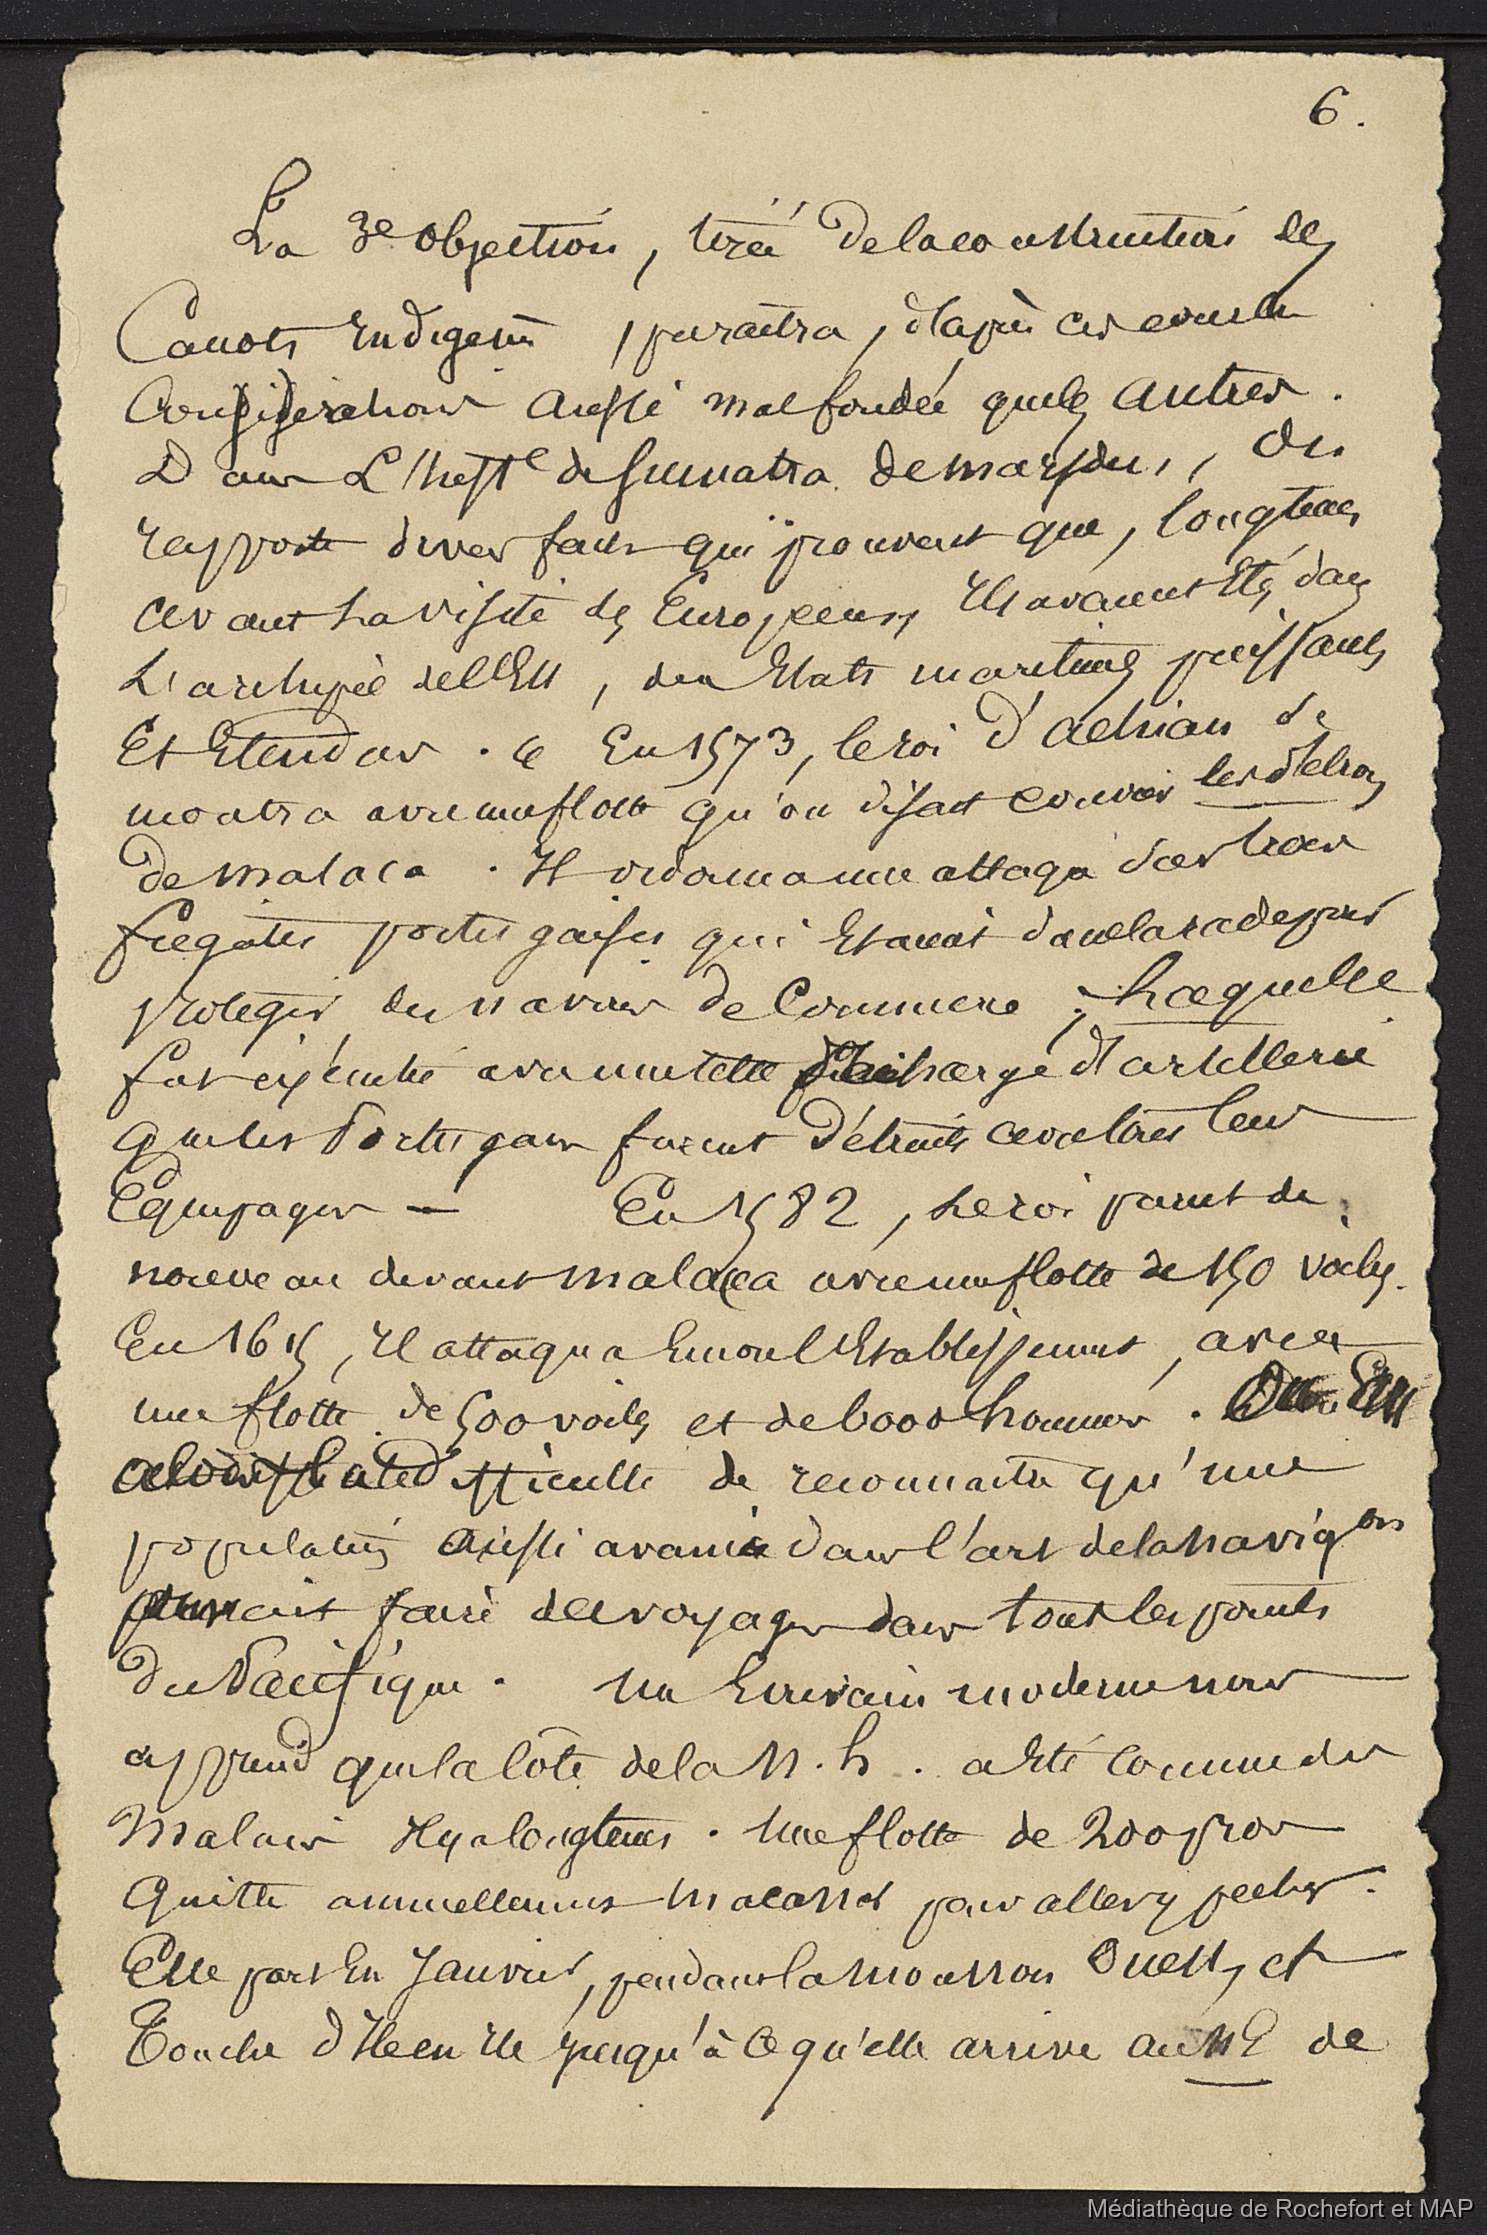 6.
La 3e objection, tirée de la construction des
Canots Indigenes, paraîtra, d'après ces courtes
Considérations aussi mal fondée que les autres.
Dans L'hist.e de Sumatra de Marsden, On
rapporte divers faits qui prouvent que, longtems
avant La visite des Européens, Il y avaient Eté, dans
L'archipel de l'Est, des Etats maritimes puissants
Et Etendus. En 1573, le roi d'achian se
montra avec une flotte qu'on disait couvrir les détroits
De Malaca. Il ordonna une attaque sur trois
fregates portugaises qui Etaient dans la rade pour
proteger des navires de Commerce ; Laquelle
fut exécutée avec une telle décharge d'artillerie
que les Portugais furent Détruits avec tous leurs
Equipages — En 1582, Le roi parut de
nouveau devant Malacca avec une flotte de 150 voiles.
En 1615, Il attaqua Encore l'Etablissement, avec
une flotte de 500 voiles et de 6000 hommes.
difficulté de reconnaitre qu'une
population aussi avancée dans l'art de la navig.on
pouvait faire des voyages dans tous les points
du Pacifique. Un Ecrivain moderne nous
apprend que la Côte de la N. h. a Eté Connue des
Malais Il y a longtems. Une flotte de 200 pros
Quitte annuellement Macassar pour aller y pecher.
Elle part En Janvier, pendant la mousson Ouest, et
Touche d'Ile en Ile jusqu'à Ce qu'elle arrive au NE de
Médiathèque de Rochefort et MAP